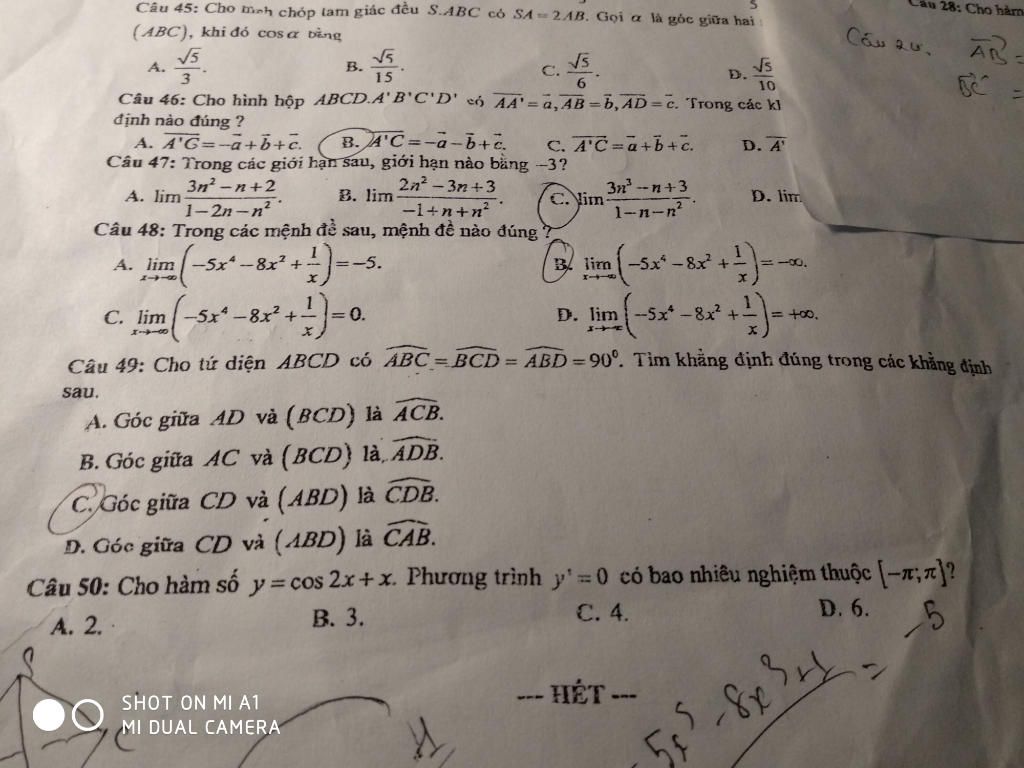 Câu 45: Cho hình chóp tam giác đều S.ABC có SA = 2AB. Gọi α là góc giữa hai
(ABC), khi đó cos α bằng
A. √5/3. B. √5/15. C. √5/6. D. √5/10
Câu 46: Cho hình hộp ABCD.A'B'C'D' có AA' = a, AB = b, AD = c. Trong các
định nào đúng ?
A. A'C = -a + b + c. B. A'C = -a - b + c. C. A'C = a + b + c. D. A'
Câu 47: Trong các giới hạn sau, giới hạn nào bằng -3?
A. lim (3n² - n + 2)/(1 - 2n - n²). B. lim (2n² - 3n + 3)/(-1 + n + n²). C. lim (3n³ - n + 3)/(1 - n - n²). D. lim
Câu 48: Trong các mệnh đề sau, mệnh đề nào đúng ?
A. lim x→-∞ (-5x⁴ - 8x² + 1/x) = -5. B. lim x→-∞ (-5x⁴ - 8x² + 1/x) = -∞.
C. lim x→-∞ (-5x⁴ - 8x² + 1/x) = 0. D. lim x→-∞ (-5x⁴ - 8x² + 1/x) = +∞.
Câu 49: Cho tứ diện ABCD có ABC = BCD = ABD = 90⁰. Tìm khẳng định đúng trong các khẳng định
sau.
A. Góc giữa AD và (BCD) là ACB.
B. Góc giữa AC và (BCD) là ADB.
C. Góc giữa CD và (ABD) là CDB.
D. Góc giữa CD và (ABD) là CAB.
Câu 50: Cho hàm số y = cos 2x + x. Phương trình y' = 0 có bao nhiêu nghiệm thuộc [-π; π]?
A. 2. B. 3. C. 4. D. 6.
--- HẾT ---
Câu 28: Cho hàm
AB =
BC =
-5
S
C
SHOT ON MI A1
MI DUAL CAMERA